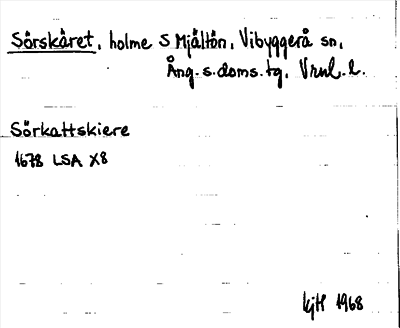 Sörskäret, holme S Mjältön, Vibyggerå sn,
Ång. s. doms. tg, Vrnl. l.
Sörkattskiere
1678 LSA X8
1968